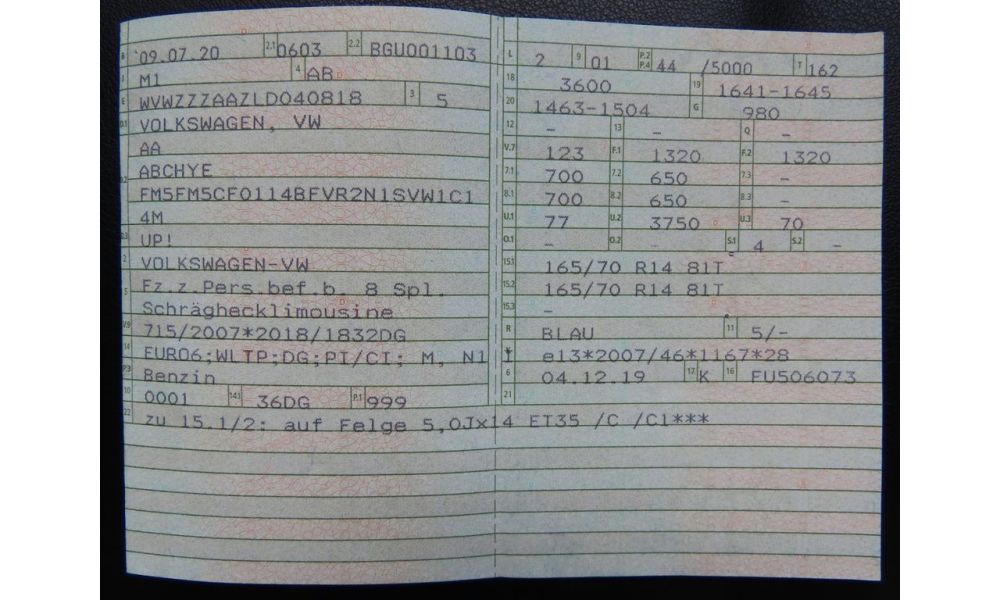 B 09.07.20 2.1 0603 2.2 BGU001103
J M1 4 AB
E WVWZZZAAZLD040818 3 5
D.1 VOLKSWAGEN, VW
AA
D.2 ABCHYE
FM5FM5CF0114BFVR2N1SVW1C1
4M
D.3 UP!
2 VOLKSWAGEN-VW
5 Fz.z.Pers.bef.b. 8 Spl.
Schräghecklimousine
V.9 715/2007*2018/1832DG
14 EURO6;WLTP;DG;PI/CI; M, N1 I
P.3 Benzin
10 0001 14.1 36DG P.1 999
22 zu 15.1/2: auf Felge 5,0Jx14 ET35 /C /C1***
L 2 9 01 P.2 P.4 44 /5000 T 162
18 3600 19 1641-1645
20 1463-1504 G 980
12 - 13 - Q -
V.7 123 F.1 1320 F.2 1320
7.1 700 7.2 650 7.3 -
8.1 700 8.2 650 8.3 -
U.1 77 U.2 3750 U.3 70
O.1 - O.2 - S.1 4 S.2 -
15.1 165/70 R14 81T
15.2 165/70 R14 81T
15.3 -
R BLAU 11 5/-
K e13*2007/46*1167*28
6 04.12.19 17 K 16 FU506073
21